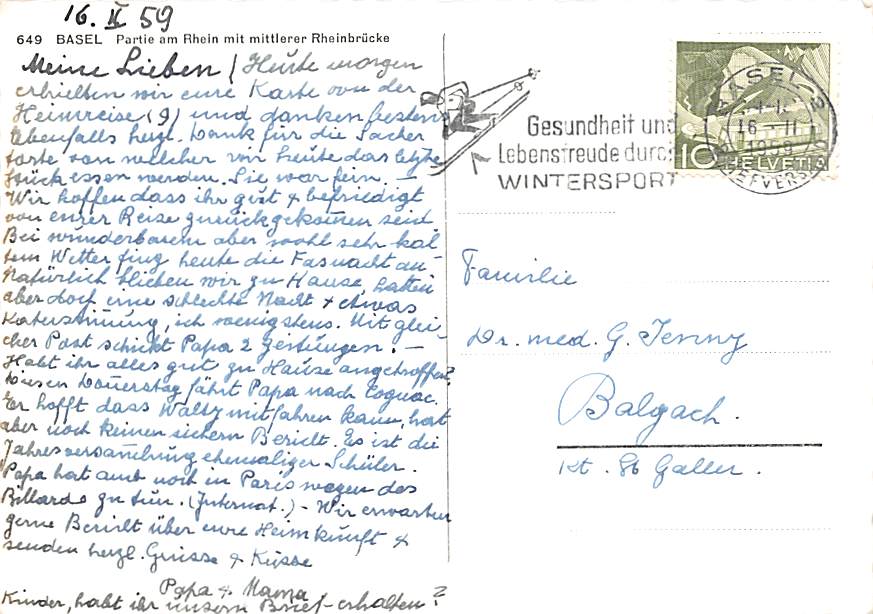 16. II 59
649 BASEL Partie am Rhein mit mittlerer Rheinbrücke
Meine Lieben! Heute morgen
erhielten wir eure Karte von der
Heimreise (9) und danken bestens
Ebenfalls herzl. Dank für die Sacher
torte von welcher wir heute das letzte
Stück essen werden. Sie war fein. —
Wir hoffen dass ihr gut & befriedigt
von eurer Reise zurückgekommen seid.
Bei wunderbarem aber wohl sehr kal
tem Wetter fing heute die Fasnacht an.
Natürlich blieben wir zu Hause, hatten
aber doch eine schlechte Nacht & etwas
Katerstimmung, ich wenigstens. Mit glei
cher Post schickt Papa 2 Zeitungen. —
Habt ihr alles gut zu Hause angetroffen?
Diesen Donnerstag fährt Papa nach Cognac.
Er hofft dass Walty mitfahren kann, hat
aber noch keinen sichern Bericht. Es ist die
Jahresversammlung ehemaliger Schüler.
Papa hat auch noch in Paris wegen des
Billards zu tun. (Internat.) - Wir erwarten
gerne Bericht über eure Heimkunft &
senden herzl. Grüsse & Küsse
Papa & Mama
Kinder, habt ihr unsern Brief erhalten?
Gesundheit und
Lebensfreude durch
WINTERSPORT
BASEL 2
16. II
1959
BRIEFVERS
10 HELVETIA
Familie
Dr. med. G. Jenny
Balgach.
Kt. St Gallen.